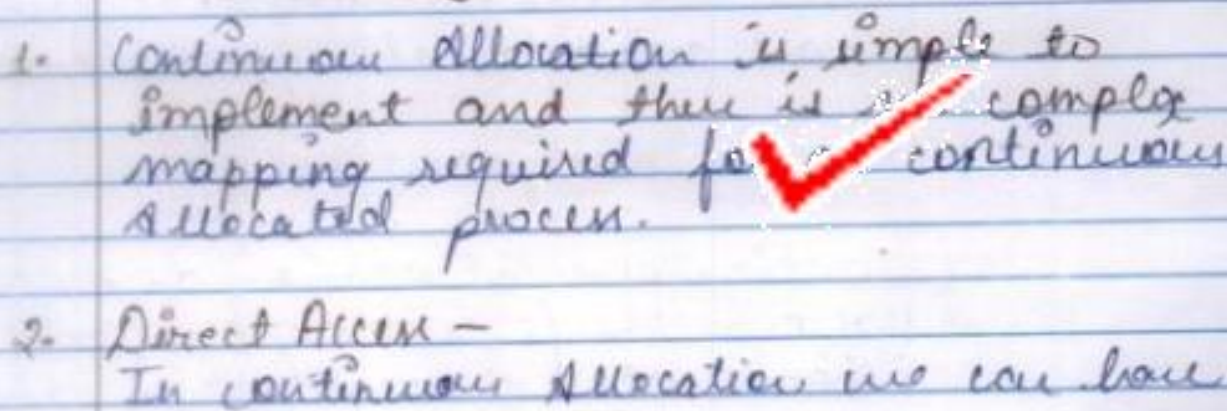 1. Continuous Allocation is simple to
implement and there is complex
mapping required continuous
Allocated process.
2. Direct Access -
In continuous Allocation we can have